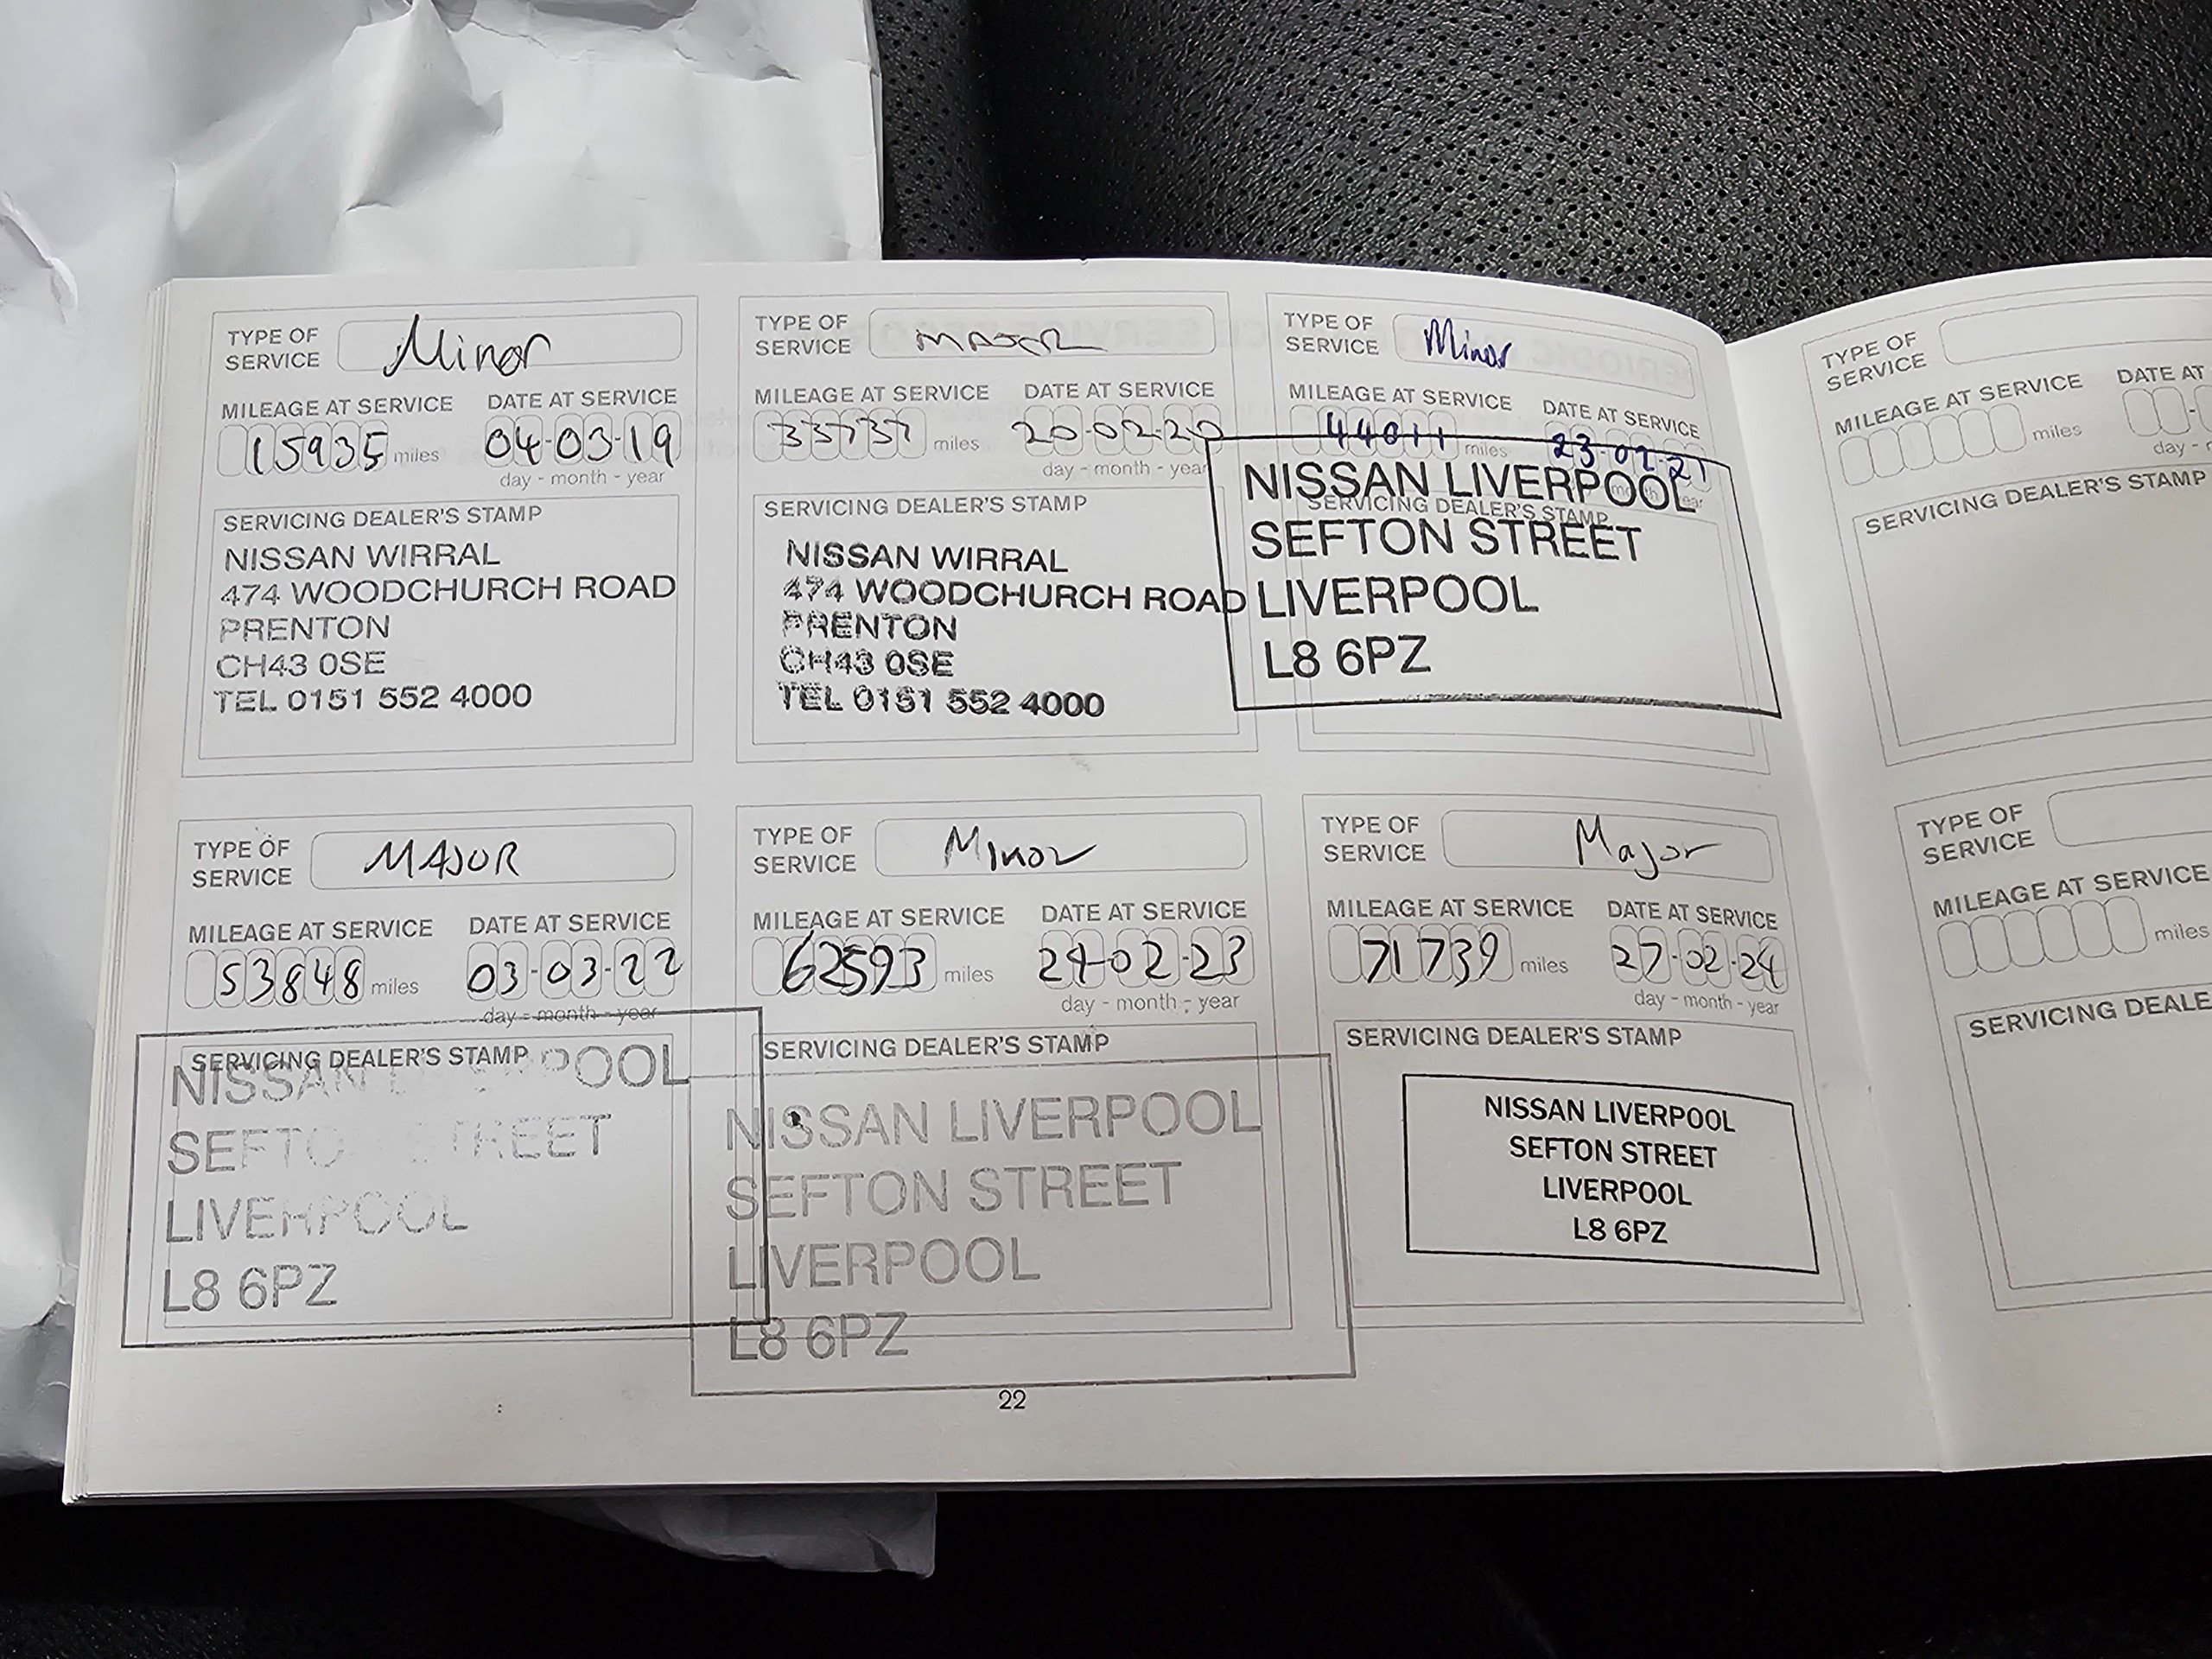 TYPE OF SERVICE Minor
MILEAGE AT SERVICE DATE AT SERVICE
15935 miles 04-03-19
day - month - year
SERVICING DEALER'S STAMP
NISSAN WIRRAL
474 WOODCHURCH ROAD
PRENTON
CH43 0SE
TEL 0151 552 4000
TYPE OF SERVICE MAJOR
MILEAGE AT SERVICE DATE AT SERVICE
33737 miles 20-02-20
day - month - year
SERVICING DEALER'S STAMP
NISSAN WIRRAL
474 WOODCHURCH ROAD
PRENTON
CH43 0SE
TEL 0151 552 4000
TYPE OF SERVICE Minor
MILEAGE AT SERVICE DATE AT SERVICE
44011 miles 23-02-21
SERVICING DEALER'S STAMP
NISSAN LIVERPOOL
SEFTON STREET
LIVERPOOL
L8 6PZ
TYPE OF SERVICE MAJOR
MILEAGE AT SERVICE DATE AT SERVICE
53848 miles 03-03-22
day - month - year
SERVICING DEALER'S STAMP
NISSAN LIVERPOOL
SEFTON STREET
LIVERPOOL
L8 6PZ
TYPE OF SERVICE Minor
MILEAGE AT SERVICE DATE AT SERVICE
62593 miles 24-02-23
day - month - year
SERVICING DEALER'S STAMP
NISSAN LIVERPOOL
SEFTON STREET
LIVERPOOL
L8 6PZ
TYPE OF SERVICE Major
MILEAGE AT SERVICE DATE AT SERVICE
71739 miles 27-02-24
day - month - year
SERVICING DEALER'S STAMP
NISSAN LIVERPOOL
SEFTON STREET
LIVERPOOL
L8 6PZ
22
TYPE OF SERVICE
MILEAGE AT SERVICE DATE AT
miles day -
SERVICING DEALER'S STAMP
TYPE OF SERVICE
MILEAGE AT SERVICE
miles
SERVICING DEALE